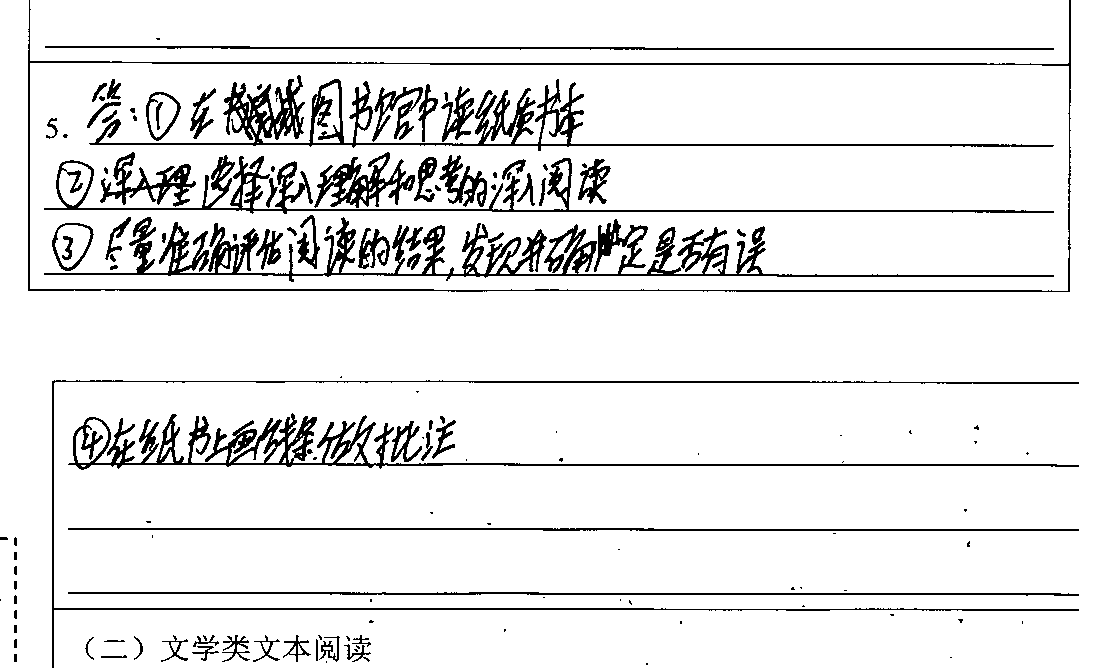 5. 答:①在图书馆中读纸质书本
②选择深入理解和思考的深入阅读
③尽量准确评估阅读的结果,发现并确定是否有误
④在纸书上画线条做批注
(二)文学类文本阅读